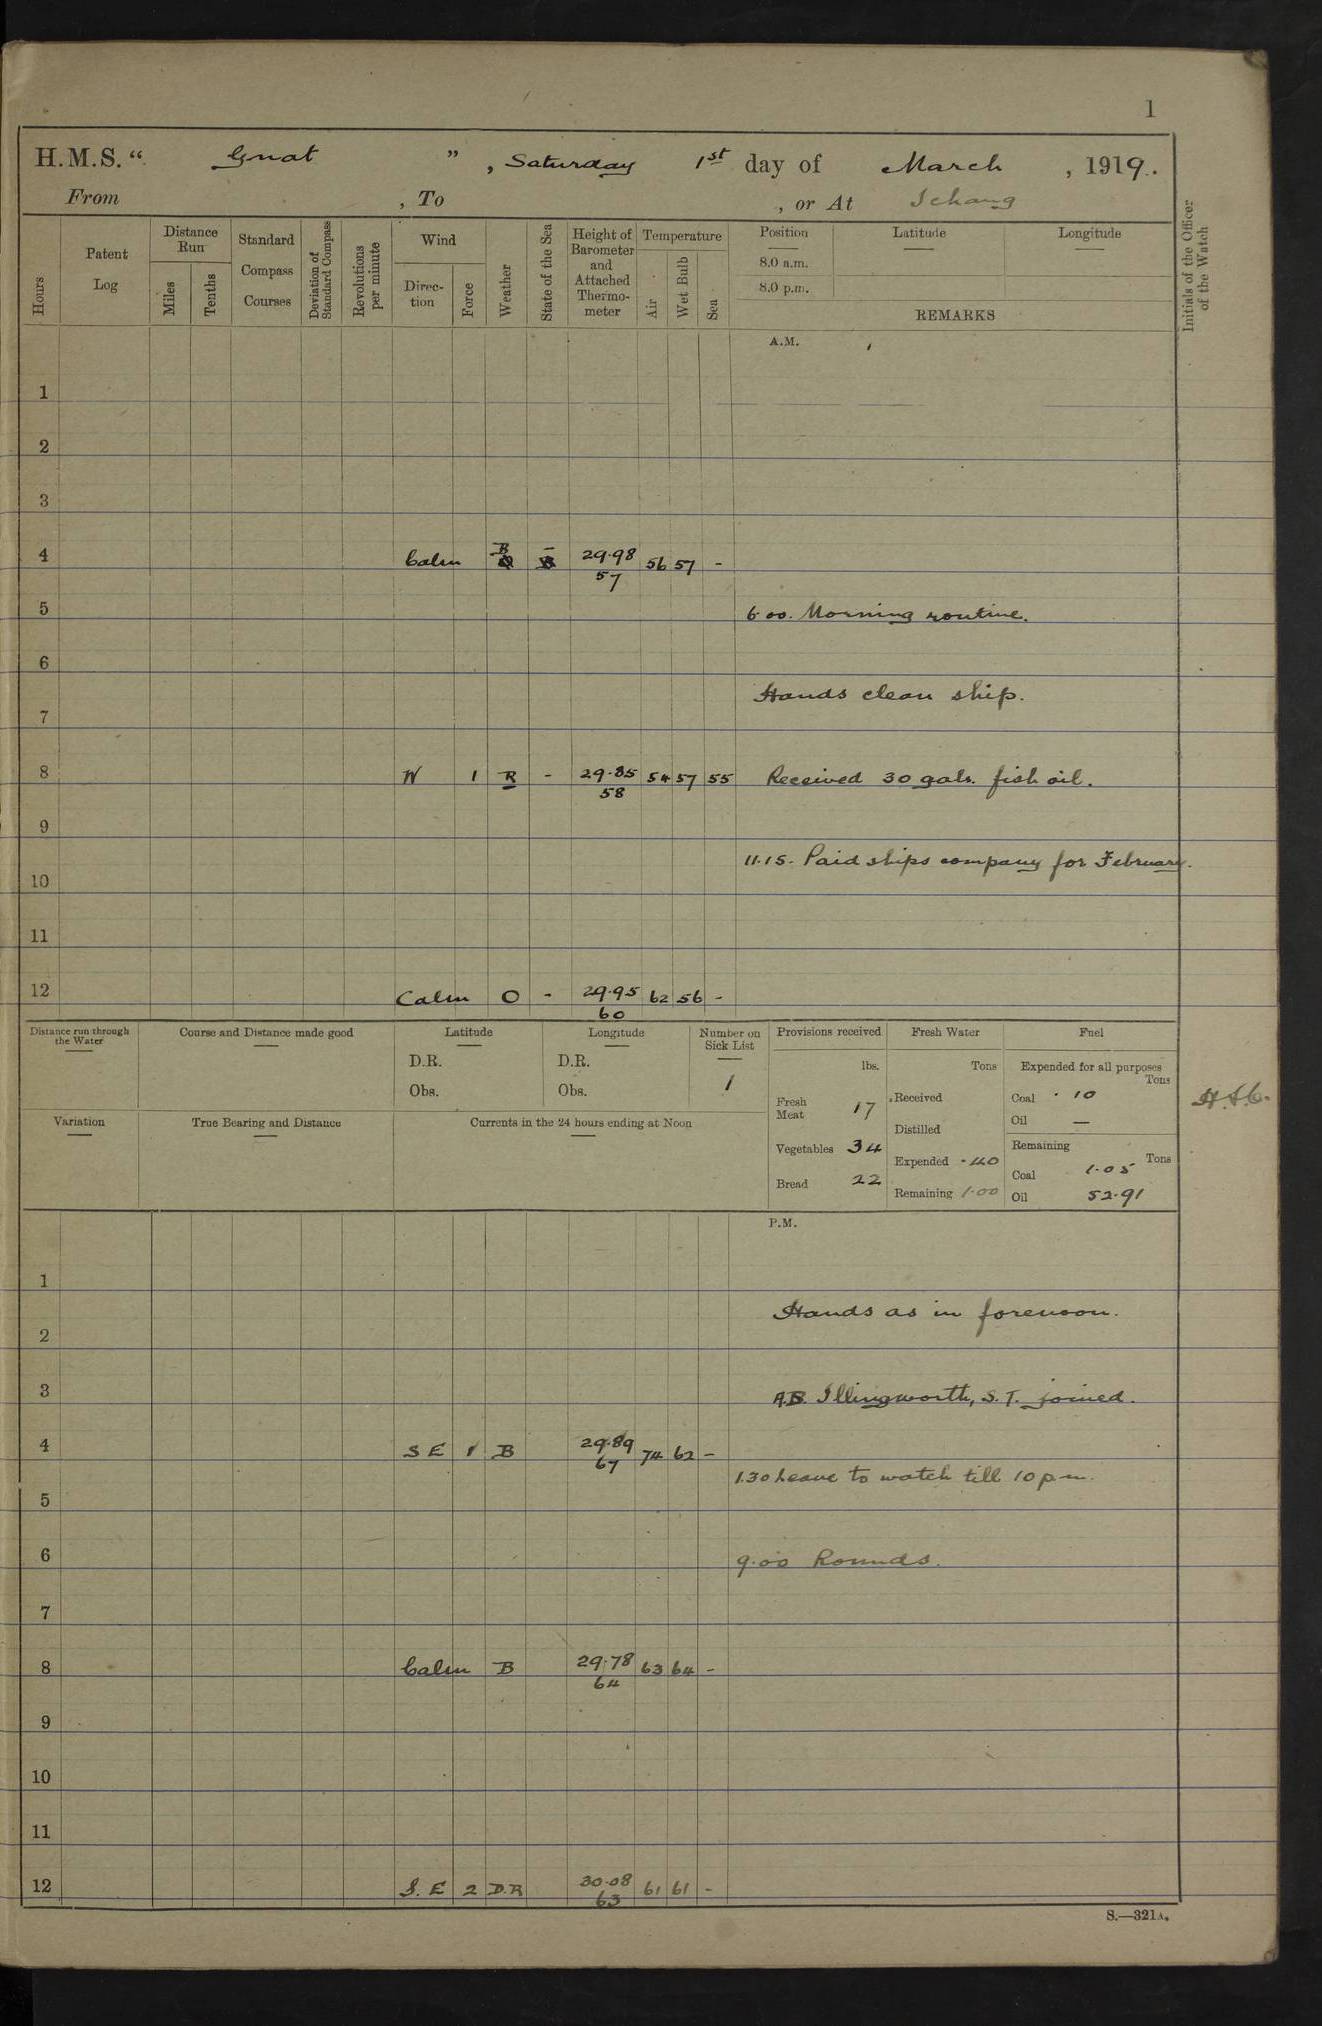 1
H.M.S. " Gnat ", Saturday 1st day of March, 1919.
From , To , or At Ichang
Hours
Patent Log
Distance Run
Miles
Tenths
Standard Compass Courses
Deviation of Standard Compass
Revolutions per minute
Wind
Direction
Force
Weather
State of the Sea
Height of Barometer and Attached Thermometer
Temperature
Air
Wet Bulb
Sea
Position
8.0 a.m.
8.0 p.m.
Latitude
Longitude
REMARKS
Initials of the Officer of the Watch
A.M.
1
2
3
4 Calm B - 29.98 57 56 57 -
5
6.00. Morning routine.
6
Hands clean ship.
7
8 W 1 R - 29.85 58 54 57 55 Received 30 gals. fish oil.
9
11.15. Paid ships company for February.
10
11
12 Calm O - 29.95 60 62 56 -
Distance run through the Water
Course and Distance made good
Latitude
D.R.
Obs.
Longitude
D.R.
Obs.
Number on Sick List
1
Provisions received
lbs.
Fresh Meat 17
Vegetables 34
Bread 22
Fresh Water
Tons
Received
Distilled
Expended .40
Remaining 1.00
Fuel
Expended for all purposes
Tons
Coal .10
Oil —
Remaining
Tons
Coal 1.05
Oil 52.91
Variation
True Bearing and Distance
Currents in the 24 hours ending at Noon
P.M.
1
Hands as in forenoon.
2
3 A.B. Illingworth, S.T. joined.
4 SE 1 B 29.89 67 74 62 -
1.30 Leave to watch till 10 p.m.
5
6 9.00 Rounds.
7
8 Calm B 29.78 64 63 64 -
9
10
11
12 S.E 2 D.R 30.08 63 61 61 -
S.—321A.